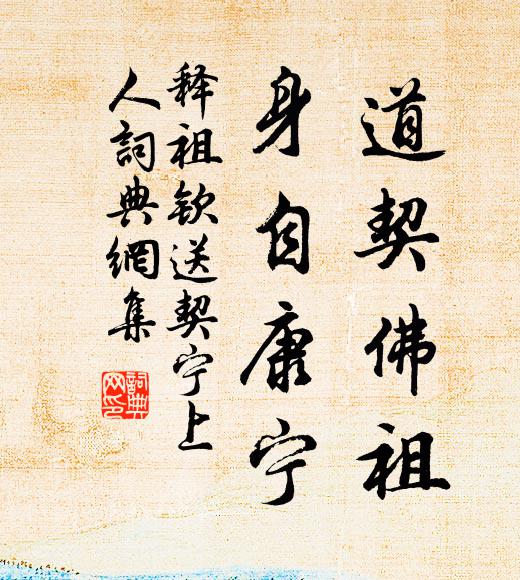 道契佛祖
身自康宁
释祖钦送契宁上
人詞典網集
詞典
网印